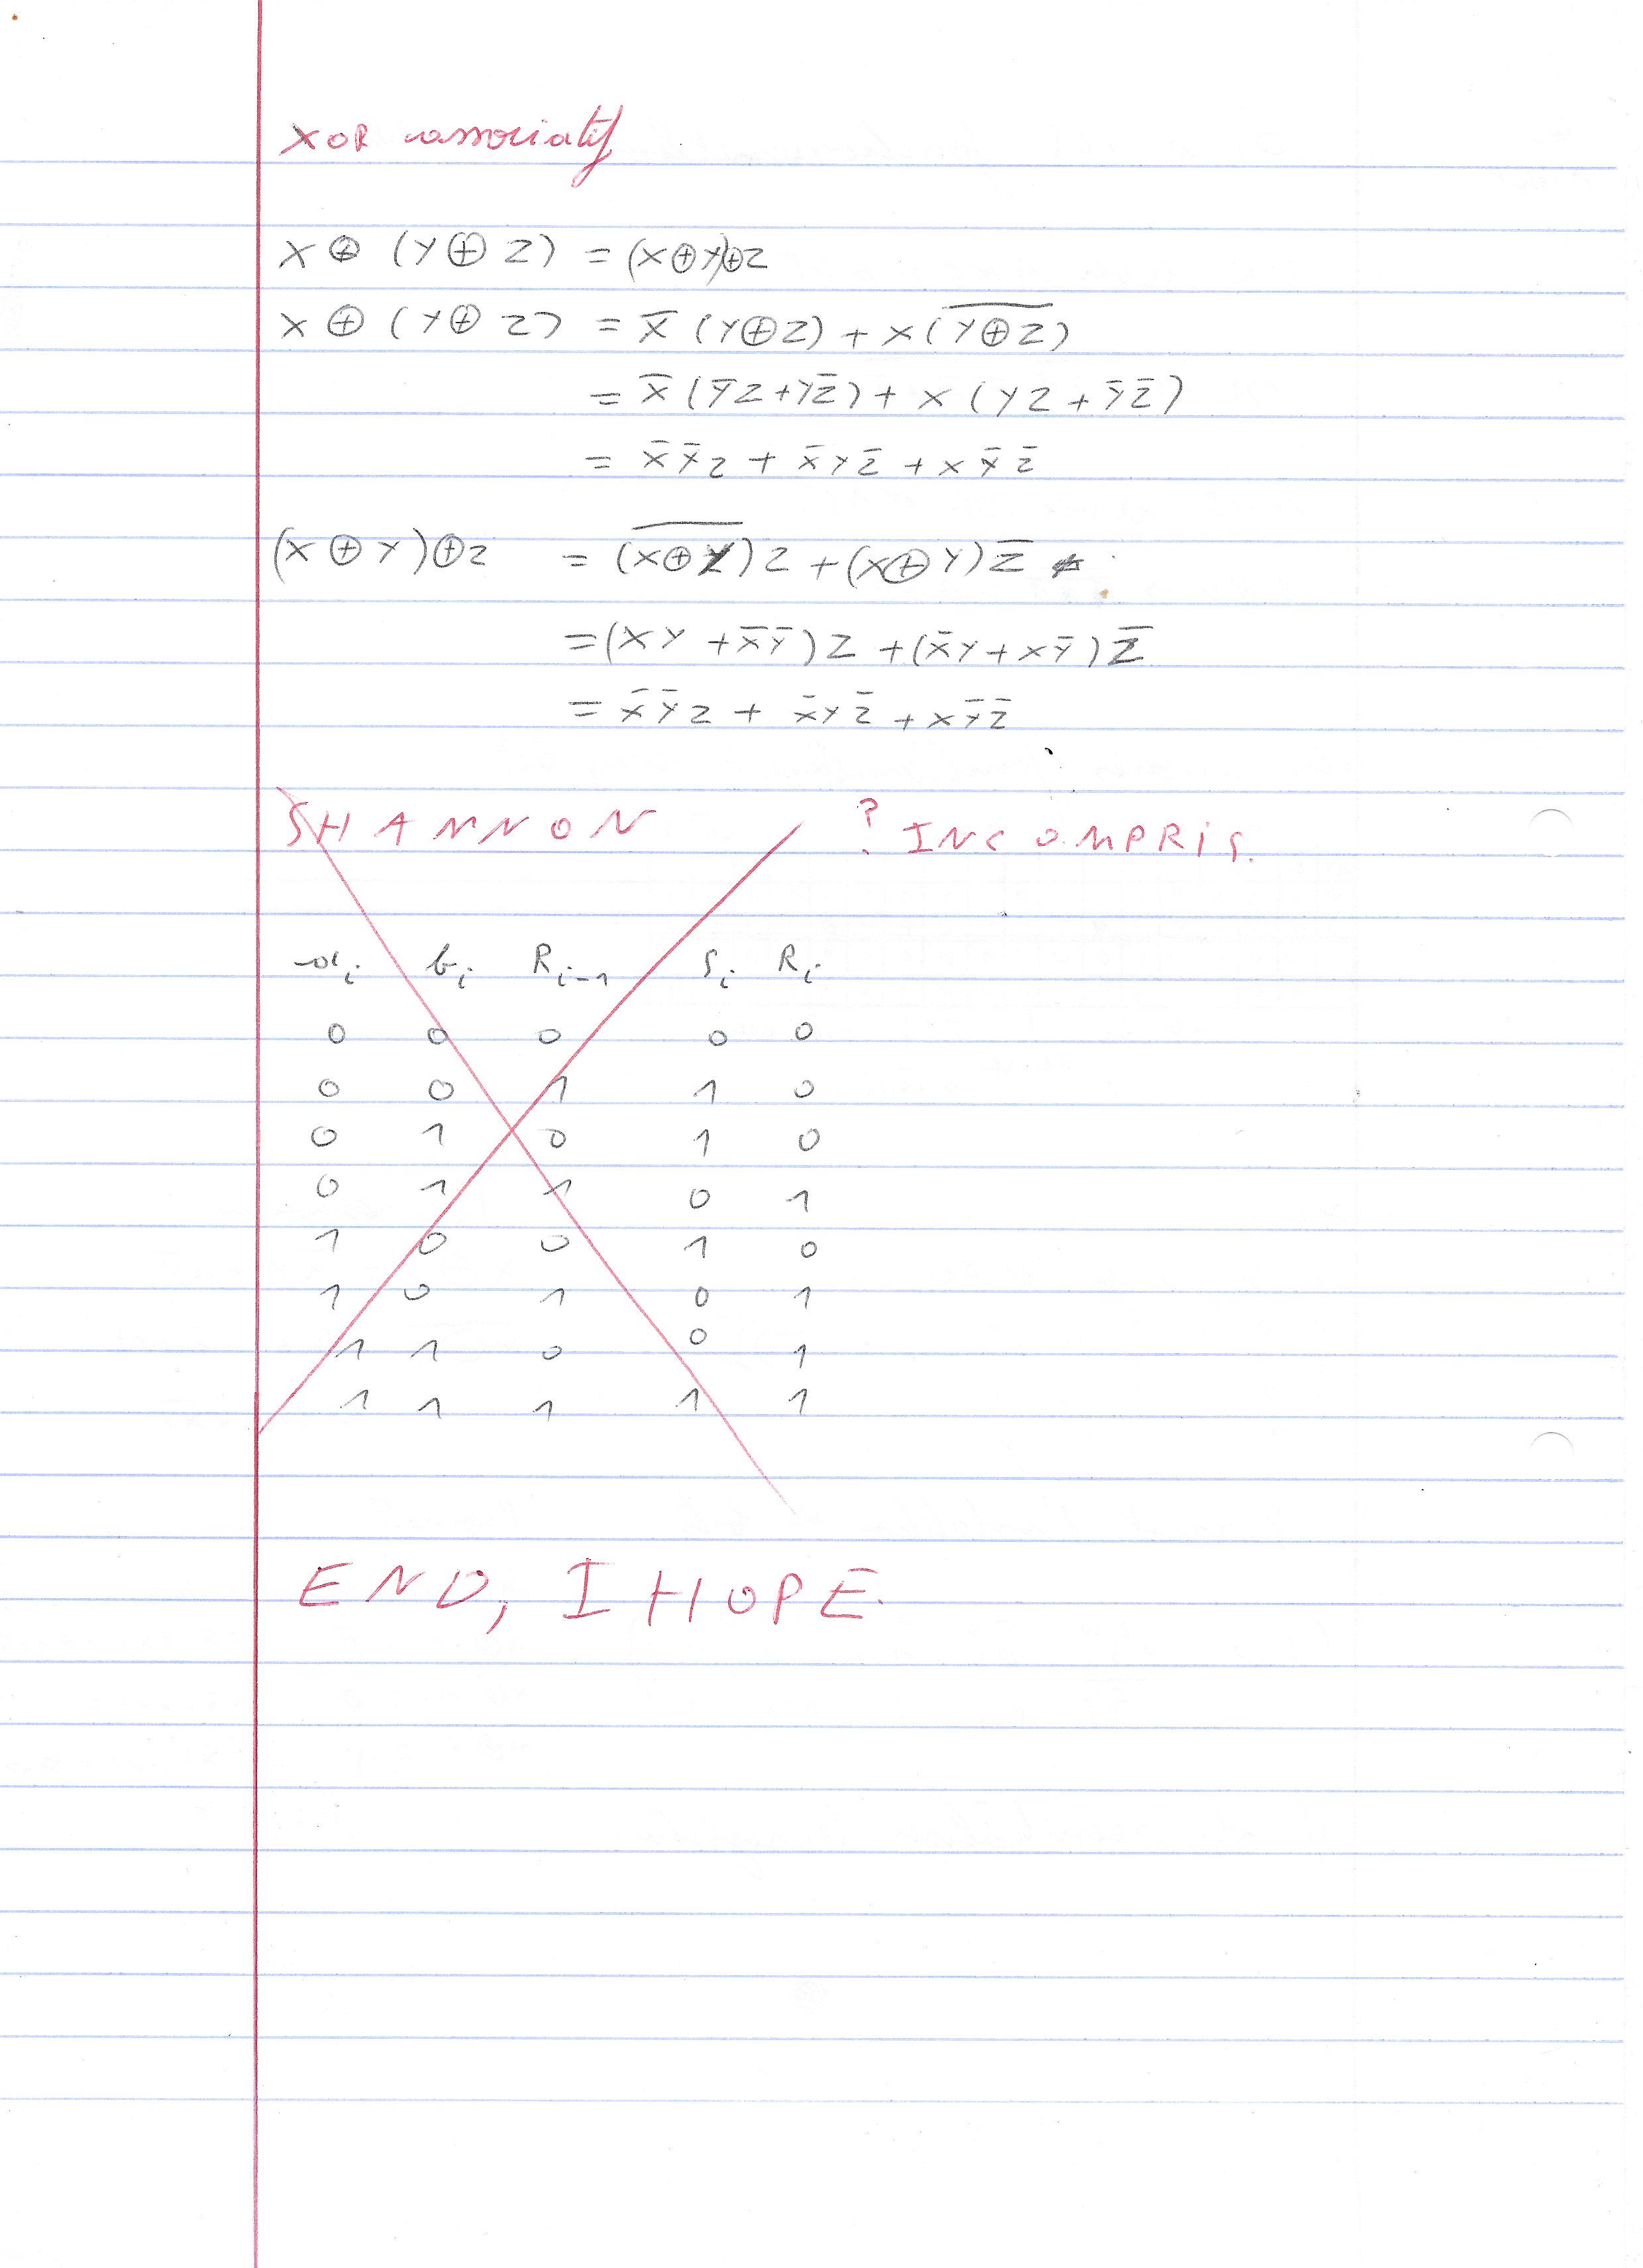 XOR associatif
X ⊕ (Y ⊕ Z) = (X ⊕ Y) ⊕ Z
X ⊕ (Y ⊕ Z) = X̅ (Y ⊕ Z) + X (\overline{Y ⊕ Z})
= X̅ (Y̅Z + YZ̅) + X (YZ + Y̅Z̅)
= X̅Y̅Z + X̅YZ̅ + XY̅Z̅
(X ⊕ Y) ⊕ Z = (\overline{X ⊕ Y}) Z + (X ⊕ Y) Z̅
= (XY + X̅Y̅) Z + (X̅Y + XY̅) Z̅
= X̅Y̅Z + X̅YZ̅ + XY̅Z̅
SHANNON ? INCOMPRIS.
ai bi Ri-1 Si Ri
0 0 0 0 0
0 0 1 1 0
0 1 0 1 0
0 1 1 0 1
1 0 0 1 0
1 0 1 0 1
1 1 0 0 1
1 1 1 1 1
END, I HOPE.